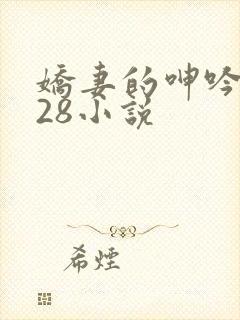 嬌妻的呻吟
28小說
希煙